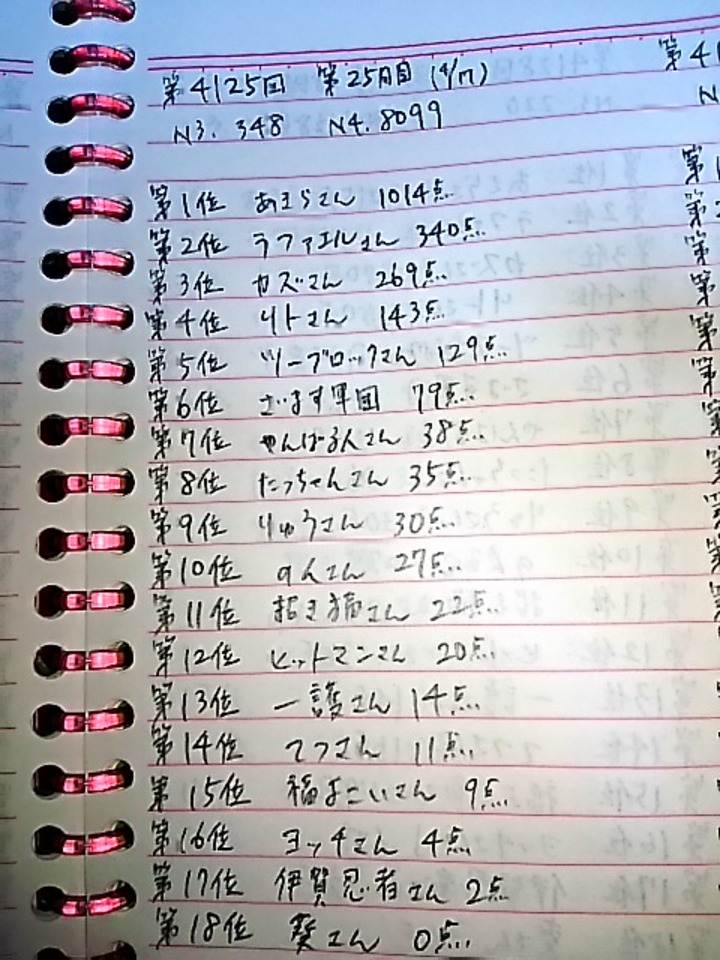 第4125回 第25月目 (4/17)
N3. 348 N4. 8099
第1位 あきらさん 1014点
第2位 ラファエルさん 340点
第3位 カズさん 269点
第4位 リトさん 143点
第5位 ツーブロックさん 129点
第6位 ざます軍団 79点
第7位 やんばるんさん 38点
第8位 たっちゃんさん 35点
第9位 りゅうさん 30点
第10位 のんさん 27点
第11位 招き猫さん 22点
第12位 ヒットマンさん 20点
第13位 一護さん 14点
第14位 てつさん 11点
第15位 福よこいさん 9点
第16位 ヨッチさん 4点
第17位 伊賀忍者さん 2点
第18位 葵さん 0点
第41
N
第1
第
第
第
第
第
第